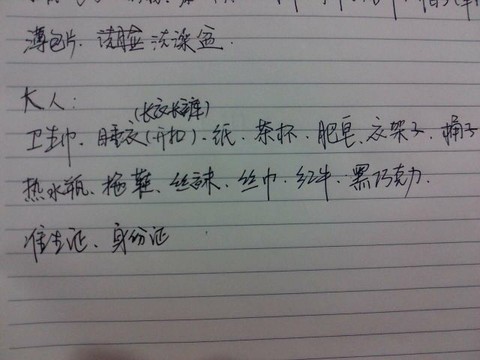 薄包片、洗脸洗澡盆.
大人:
(长衣长裤)
卫生巾、睡衣(开扣)、纸、茶杯、肥皂、衣架子、桶子
热水瓶、拖鞋、丝袜、丝巾、红牛、黑巧克力.
准生证、身份证